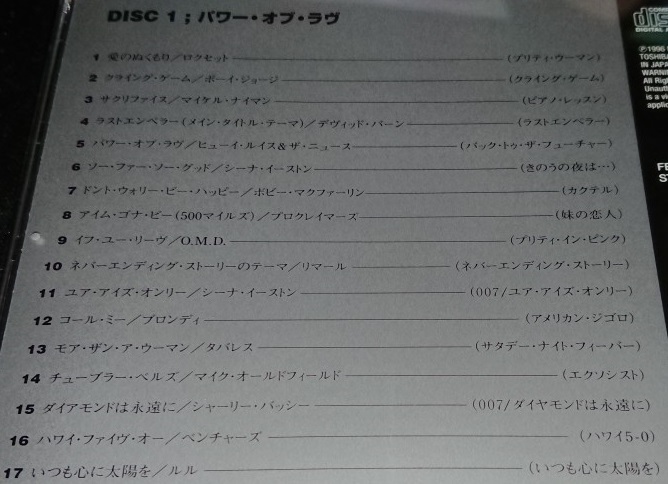 DISC 1 ; パワー・オブ・ラヴ
1 愛のぬくもり／ロクセット (プリティ・ウーマン)
2 クライング・ゲーム／ボーイ・ジョージ (クライング・ゲーム)
3 サクリファイス／マイケル・ナイマン (ピアノ・レッスン)
4 ラストエンペラー(メイン・タイトル・テーマ)／デヴィッド・バーン (ラストエンペラー)
5 パワー・オブ・ラヴ／ヒューイ・ルイス&ザ・ニュース (バック・トゥ・ザ・フューチャー)
6 ソー・ファー・ソー・グッド／シーナ・イーストン (きのうの夜は…)
7 ドント・ウォリー・ビー・ハッピー／ボビー・マクファーリン (カクテル)
8 アイム・ゴナ・ビー(500マイルズ)／プロクレイマーズ (妹の恋人)
9 イフ・ユー・リーヴ／O.M.D. (プリティ・イン・ピンク)
10 ネバーエンディング・ストーリーのテーマ／リマール (ネバーエンディング・ストーリー)
11 ユア・アイズ・オンリー／シーナ・イーストン (007/ユア・アイズ・オンリー)
12 コール・ミー／ブロンディ (アメリカン・ジゴロ)
13 モア・ザン・ア・ウーマン／タバレス (サタデー・ナイト・フィーバー)
14 チューブラー・ベルズ／マイク・オールドフィールド (エクソシスト)
15 ダイアモンドは永遠に／シャーリー・バッシー (007/ダイヤモンドは永遠に)
16 ハワイ・ファイヴ・オー／ベンチャーズ (ハワイ5-0)
17 いつも心に太陽を／ルル (いつも心に太陽を)
DIGITAL
Ⓟ1996
TOSHIBA
IN JAPA
WARNI
All Rig
Unaut
is a vi
applic
FE
ST